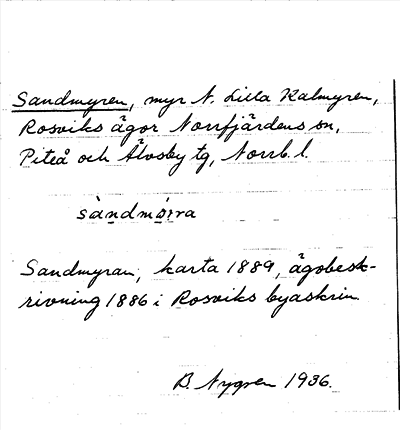 Sandmyren, myr N. Lilla Kalmyren,
Rosviks ägor Norrfjärdens sn,
Piteå och Älvsby tg, Norrb. l.
Sandmyran, karta 1889, ägobesk-
rivning 1886 i Rosviks byaskrin.
B. Nygren 1936.